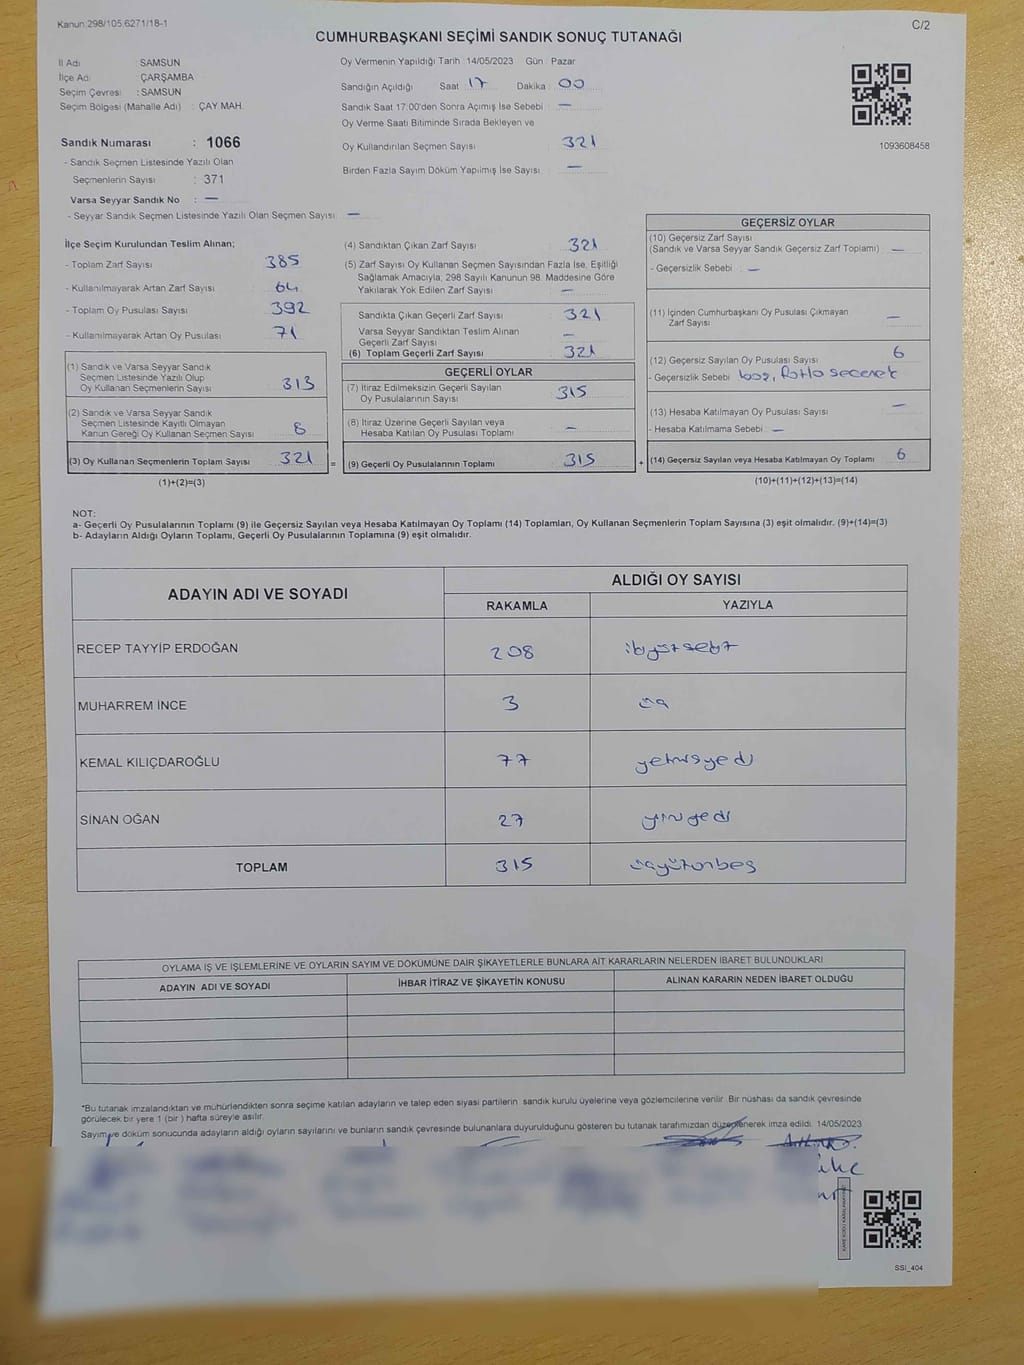 Kanun 298/105,6271/18-1
C/2
CUMHURBAŞKANI SEÇİMİ SANDIK SONUÇ TUTANAĞI
İl Adı : SAMSUN
İlçe Adı : ÇARŞAMBA
Seçim Çevresi : SAMSUN
Seçim Bölgesi (Mahalle Adı) : ÇAY MAH.
Sandık Numarası : 1066
- Sandık Seçmen Listesinde Yazılı Olan
Seçmenlerin Sayısı : 371
Varsa Seyyar Sandık No : —
- Seyyar Sandık Seçmen Listesinde Yazılı Olan Seçmen Sayısı —
Oy Vermenin Yapıldığı Tarih 14/05/2023 Gün : Pazar
Sandığın Açıldığı Saat 17 Dakika : 00
Sandık Saat 17:00'den Sonra Açımış İse Sebebi : —
Oy Verme Saati Bitiminde Sırada Bekleyen ve
Oy Kullandırılan Seçmen Sayısı : 321
Birden Fazla Sayım Döküm Yapılmış İse Sayısı : —
1093608458
İlçe Seçim Kurulundan Teslim Alınan;
- Toplam Zarf Sayısı 385
- Kullanılmayarak Artan Zarf Sayısı 64
- Toplam Oy Pusulası Sayısı 392
- Kullanılmayarak Artan Oy Pusulası 71
(1) Sandık ve Varsa Seyyar Sandık
Seçmen Listesinde Yazılı Olup
Oy Kullanan Seçmenlerin Sayısı 313
(2) Sandık ve Varsa Seyyar Sandık
Seçmen Listesinde Kayıtlı Olmayan
Kanun Gereği Oy Kullanan Seçmen Sayısı 8
(3) Oy Kullanan Seçmenlerin Toplam Sayısı 321
(1)+(2)=(3)
(4) Sandıktan Çıkan Zarf Sayısı 321
(5) Zarf Sayısı Oy Kullanan Seçmen Sayısından Fazla İse, Eşitliği
Sağlamak Amacıyla, 298 Sayılı Kanunun 98. Maddesine Göre
Yakılarak Yok Edilen Zarf Sayısı —
Sandıkta Çıkan Geçerli Zarf Sayısı 321
Varsa Seyyar Sandıktan Teslim Alınan
Geçerli Zarf Sayısı —
(6) Toplam Geçerli Zarf Sayısı 321
GEÇERLİ OYLAR
(7) İtiraz Edilmeksizin Geçerli Sayılan
Oy Pusulalarının Sayısı 315
(8) İtiraz Üzerine Geçerli Sayılan veya
Hesaba Katılan Oy Pusulası Toplamı —
= (9) Geçerli Oy Pusulalarının Toplamı 315
GEÇERSİZ OYLAR
(10) Geçersiz Zarf Sayısı
(Sandık ve Varsa Seyyar Sandık Geçersiz Zarf Toplamı) —
- Geçersizlik Sebebi : —
(11) İçinden Cumhurbaşkanı Oy Pusulası Çıkmayan
Zarf Sayısı —
(12) Geçersiz Sayılan Oy Pusulası Sayısı 6
- Geçersizlik Sebebi boş, fazla seçenek
(13) Hesaba Katılmayan Oy Pusulası Sayısı —
- Hesaba Katılmama Sebebi : —
+ (14) Geçersiz Sayılan veya Hesaba Katılmayan Oy Toplamı 6
(10)+(11)+(12)+(13)=(14)
NOT:
a- Geçerli Oy Pusulalarının Toplamı (9) ile Geçersiz Sayılan veya Hesaba Katılmayan Oy Toplamı (14) Toplamları, Oy Kullanan Seçmenlerin Toplam Sayısına (3) eşit olmalıdır. (9)+(14)=(3)
b- Adayların Aldığı Oyların Toplamı, Geçerli Oy Pusulalarının Toplamına (9) eşit olmalıdır.
ADAYIN ADI VE SOYADI ALDIĞI OY SAYISI
RAKAMLA YAZIYLA
RECEP TAYYİP ERDOĞAN 208 ikiyüzsekiz
MUHARREM İNCE 3 üç
KEMAL KILIÇDAROĞLU 77 yetmişyedi
SİNAN OĞAN 27 yirmiyedi
TOPLAM 315 üçyüzonbeş
OYLAMA İŞ VE İŞLEMLERİNE VE OYLARIN SAYIM VE DÖKÜMÜNE DAİR ŞİKAYETLERLE BUNLARA AİT KARARLARIN NELERDEN İBARET BULUNDUKLARI
ADAYIN ADI VE SOYADI İHBAR İTİRAZ VE ŞİKAYETİN KONUSU ALINAN KARARIN NEDEN İBARET OLDUĞU
*Bu tutanak imzalandıktan ve mühürlendikten sonra seçime katılan adayların ve talep eden siyasi partilerin sandık kurulu üyelerine veya gözlemcilerine verilir. Bir nüshası da sandık çevresinde
görülecek bir yere 1 (bir ) hafta süreyle asılır.
Sayım ve döküm sonucunda adayların aldığı oyların sayılarını ve bunların sandık çevresinde bulunanlara duyurulduğunu gösteren bu tutanak tarafımızdan düzenlenerek imza edildi. 14/05/2023
SSİ_404